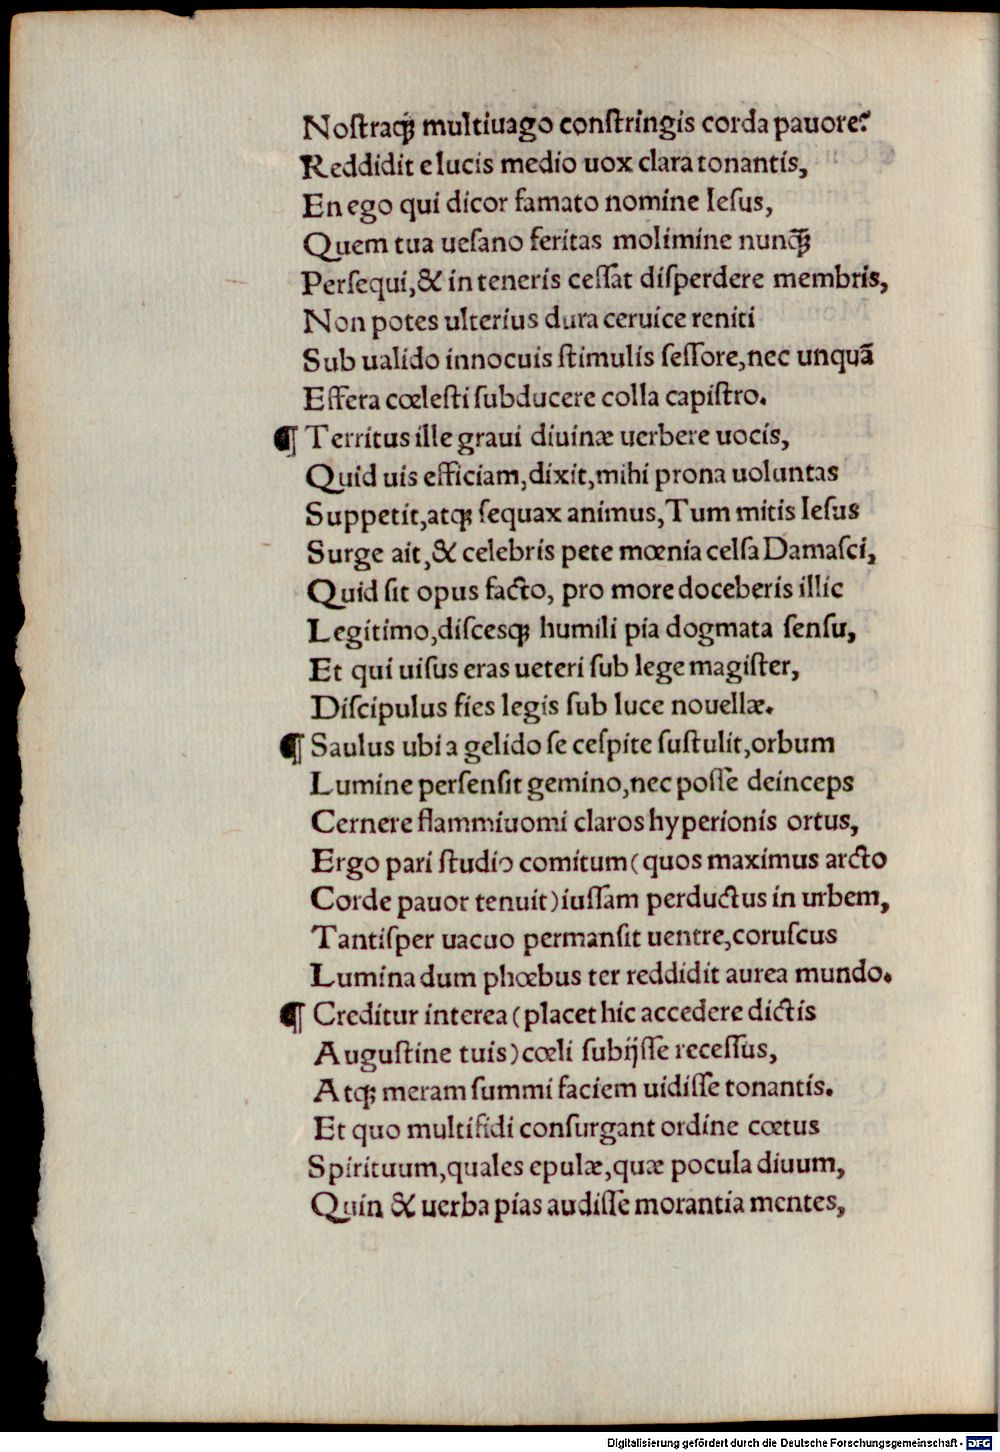 Noſtraq; multiuago conſtringis corda pauore?
Reddidit e lucis medio uox clara tonantis,
En ego qui dicor famato nomine Ieſus,
Quem tua ueſano feritas molimine nunq̃
Perſequi,& in teneris ceſſat diſperdere membris,
Non potes ulterius dura ceruice reniti
Sub ualido innocuis ſtimulis ſeſſore,nec unquã
Effera cœleſti ſubducere colla capiſtro.
¶ Territus ille graui diuinæ uerbere uocis,
Quid uis efficiam,dixit,mihi prona uoluntas
Suppetit,atq; ſequax animus,Tum mitis Ieſus
Surge ait,& celebris pete mœnia celſa Damaſci,
Quid ſit opus facto, pro more doceberis illic
Legitimo,diſcesq; humili pia dogmata ſenſu,
Et qui uiſus eras ueteri ſub lege magiſter,
Diſcipulus fies legis ſub luce nouellæ.
¶ Saulus ubi a gelido ſe ceſpite ſuſtulit,orbum
Lumine perſenſit gemino,nec poſſe deinceps
Cernere flammiuomi claros hyperionis ortus,
Ergo pari ſtudio comitum(quos maximus arcto
Corde pauor tenuit)iuſſam perductus in urbem,
Tantiſper uacuo permanſit uentre,coruſcus
Lumina dum phœbus ter reddidit aurea mundo.
¶ Creditur interea(placet hic accedere dictis
Auguſtine tuis)cœli ſubijſſe receſſus,
Atq; meram ſummi faciem uidiſſe tonantis.
Et quo multifidi conſurgant ordine cœtus
Spirituum,quales epulæ,quæ pocula diuum,
Quin & uerba pias audiſſe morantia mentes,
Digitalisierung gefördert durch die Deutsche Forschungsgemeinschaft - DFG